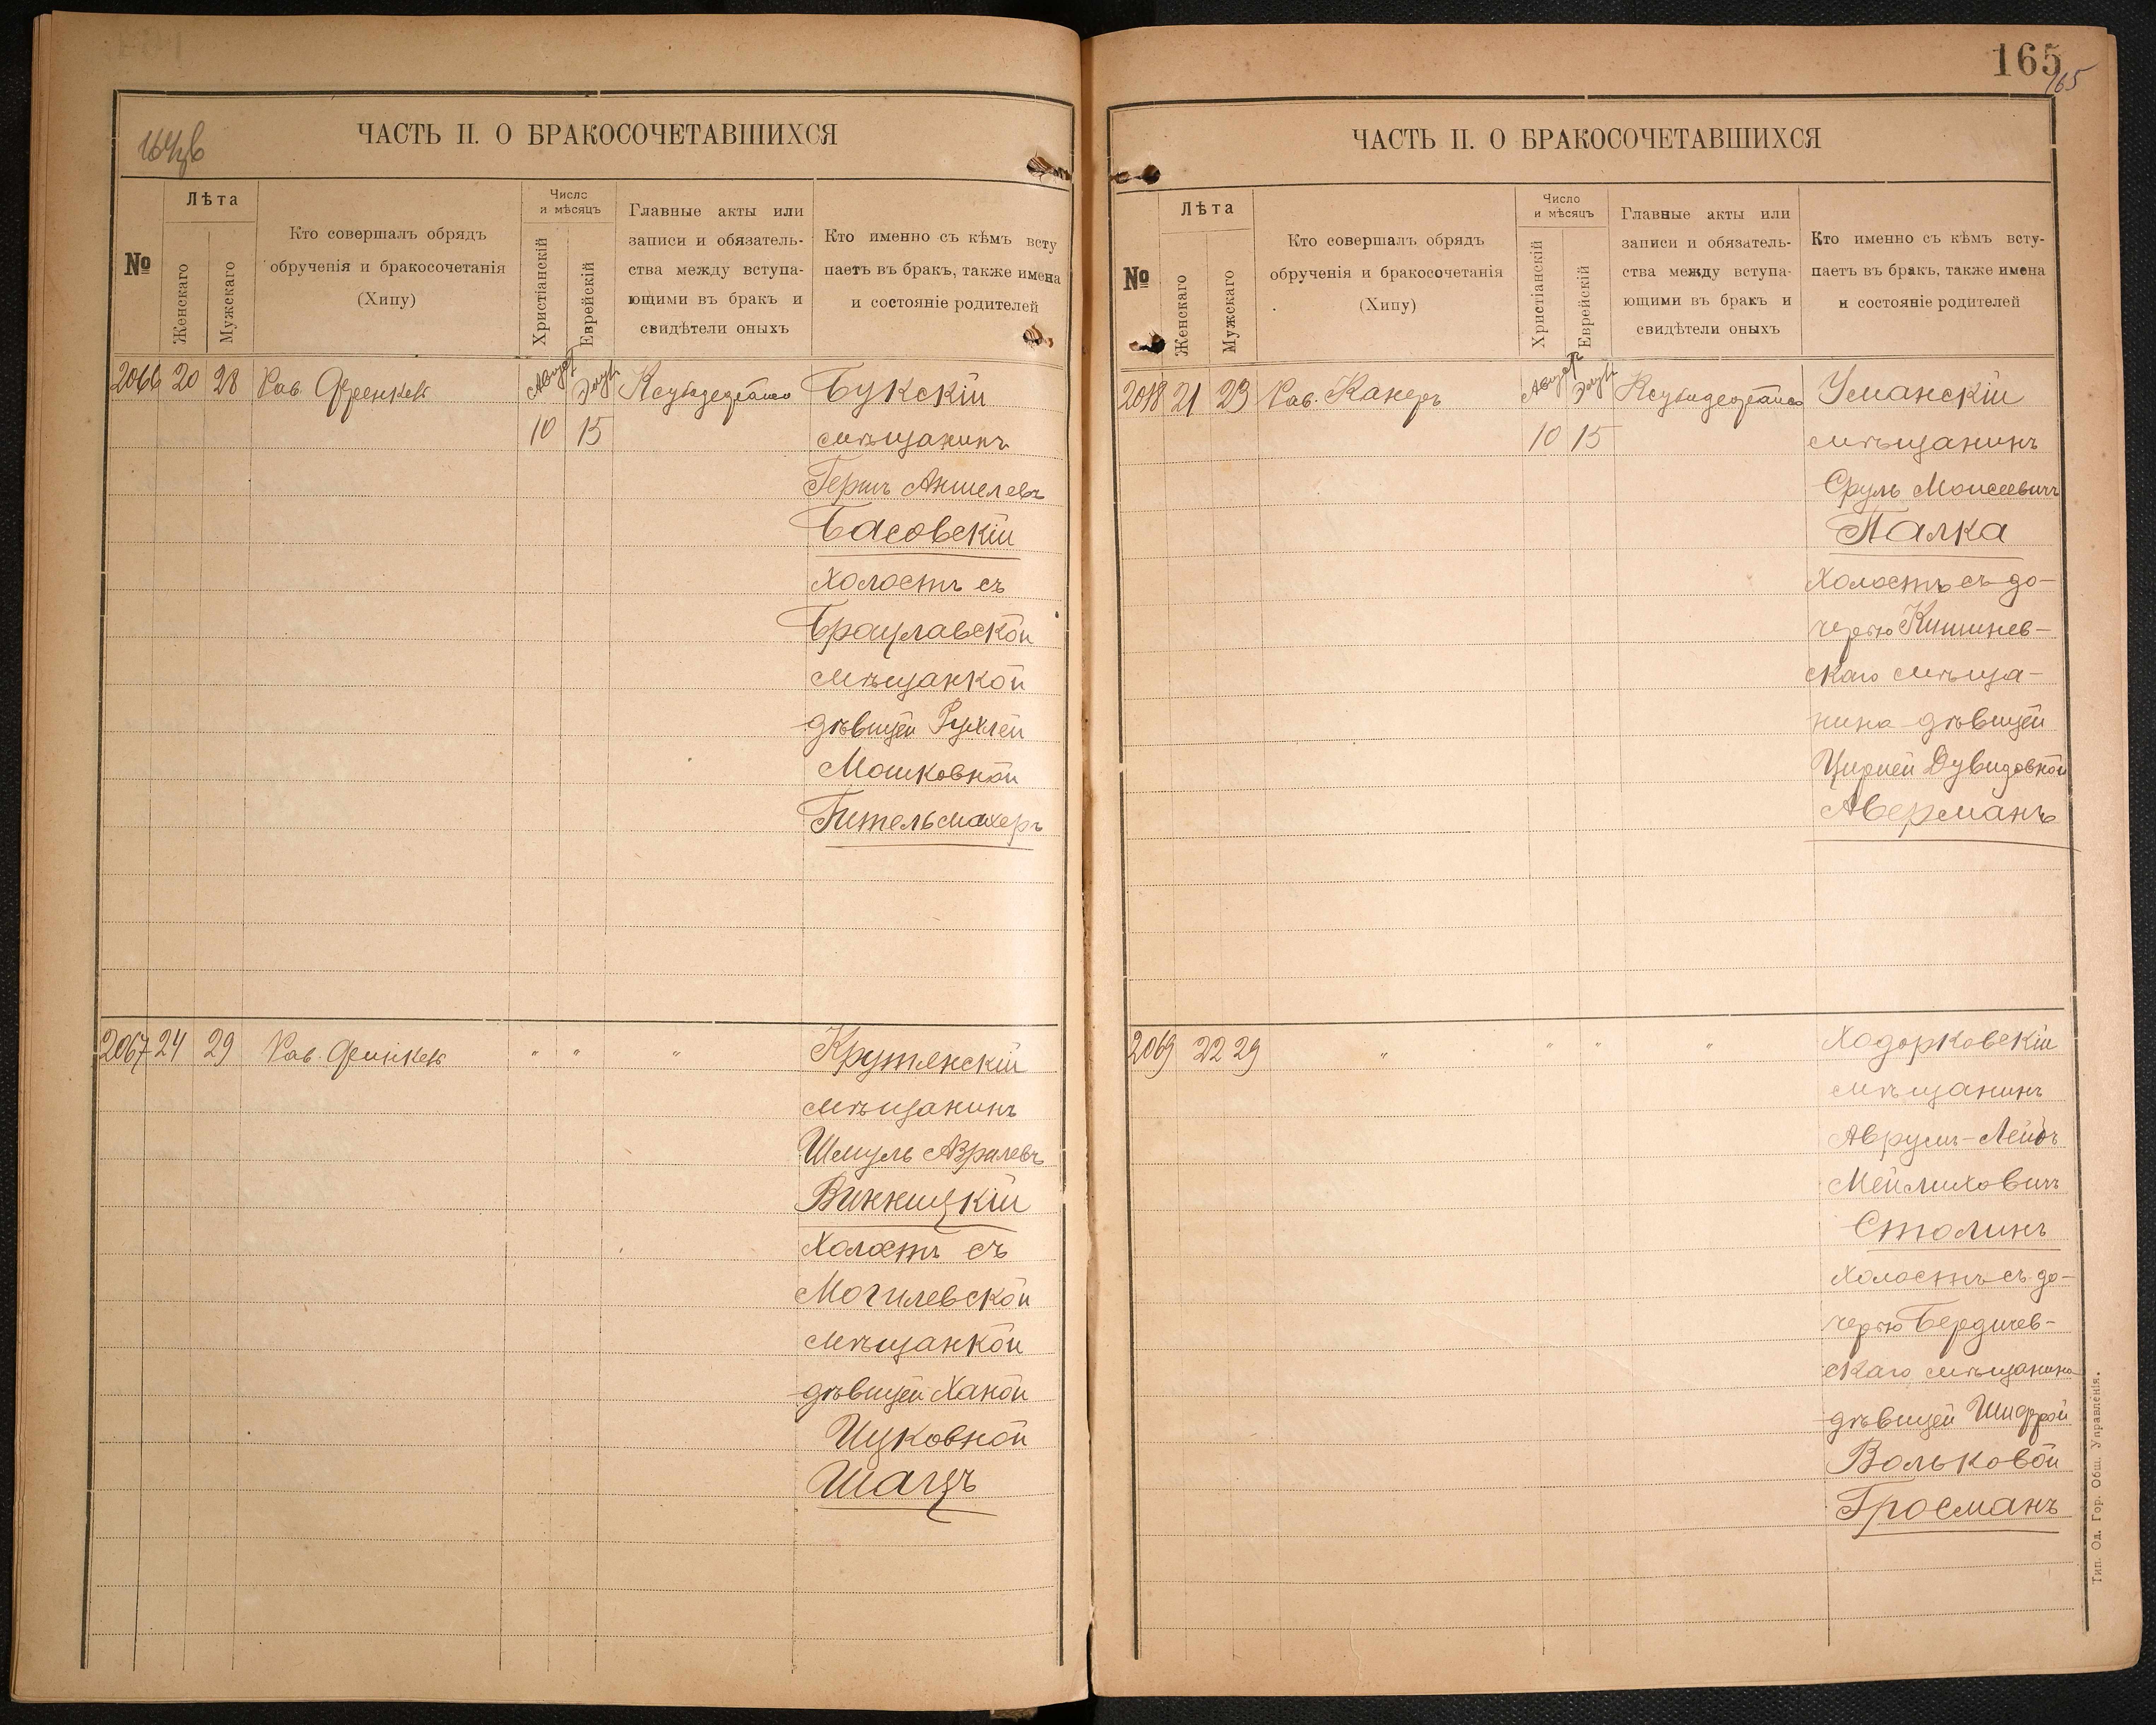 165
165
ЧАСТЬ II. О БРАКОСОЧЕТАВШИХСЯ
№
Лѣта
Женскаго
Мужскаго
Кто совершалъ обрядъ
обрученія и бракосочетанія
(Хипу)
Число
и мѣсяцъ
Христіанскій
Еврейскій
Главные акты или
записи и обязатель-
ства между вступа-
ющими въ бракъ и
свидѣтели оныхъ
Кто именно съ кѣмъ всту
паетъ въ бракъ, также имена
и состояніе родителей
2066 20 28 Рав. Френкель Август Элул Букскій
10 15 мѣщанинъ
Гершъ Аншелевъ
Басовскій
холостъ съ
Брацлавской
мѣщанкой
дѣвицей Рухлей
Мошковной
Гительмахеръ
2067 24 29 Рав. Финкель " " " Крутянскій
мѣщанинъ
Шмуль Азралевъ
Винницкій
холостъ съ
Могилевской
мѣщанкой
дѣвицей Ханой
Ицковной
Шацъ
ЧАСТЬ II. О БРАКОСОЧЕТАВШИХСЯ
№
Лѣта
Женскаго
Мужскаго
Кто совершалъ обрядъ
обрученія и бракосочетанія
(Хипу)
Число
и мѣсяцъ
Христіанскій
Еврейскій
Главные акты или
записи и обязатель-
ства между вступа-
ющими въ бракъ и
свидѣтели оныхъ
Кто именно съ кѣмъ всту-
паетъ въ бракъ, также имена
и состояніе родителей
21 23 Рав. Канеръ Август Элул Уманскій
10 15 мѣщанинъ
Сруль Моисеевичъ
Палка
холостъ съ до-
черью Кишинев-
скаго мѣща-
нина дѣвицей
Цирлей Дувидовной
Аверманъ
2069 22 29 " " " " Ходорковскій
мѣщанинъ
Аврумъ-Лейбъ
Меймиховичъ
Столинъ
холостъ съ до-
черью Бердичев-
скаго мѣщанина
дѣвицей Шифрой
Вольковой
Гросманъ
Тип. Од. Гор. Общ. Управленія.